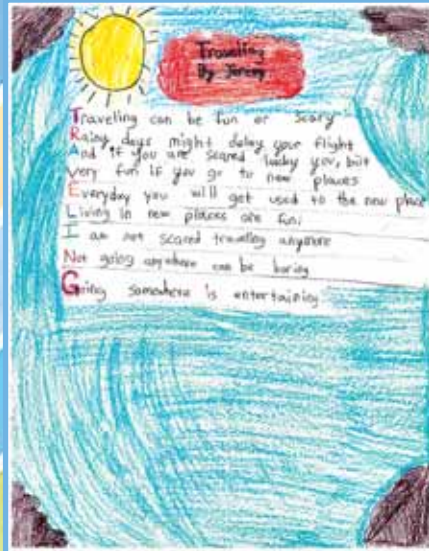 Traveling
By Jeremy
Traveling can be fun or scary
Rainy days might delay your flight
And if you are scared lucky you, but
Very fun if you go to new places
Everyday you will get used to the new place
Living in new places are fun.
I am not scared traveling anymore
Not going anywhere can be boring
Going somewhere is entertaining